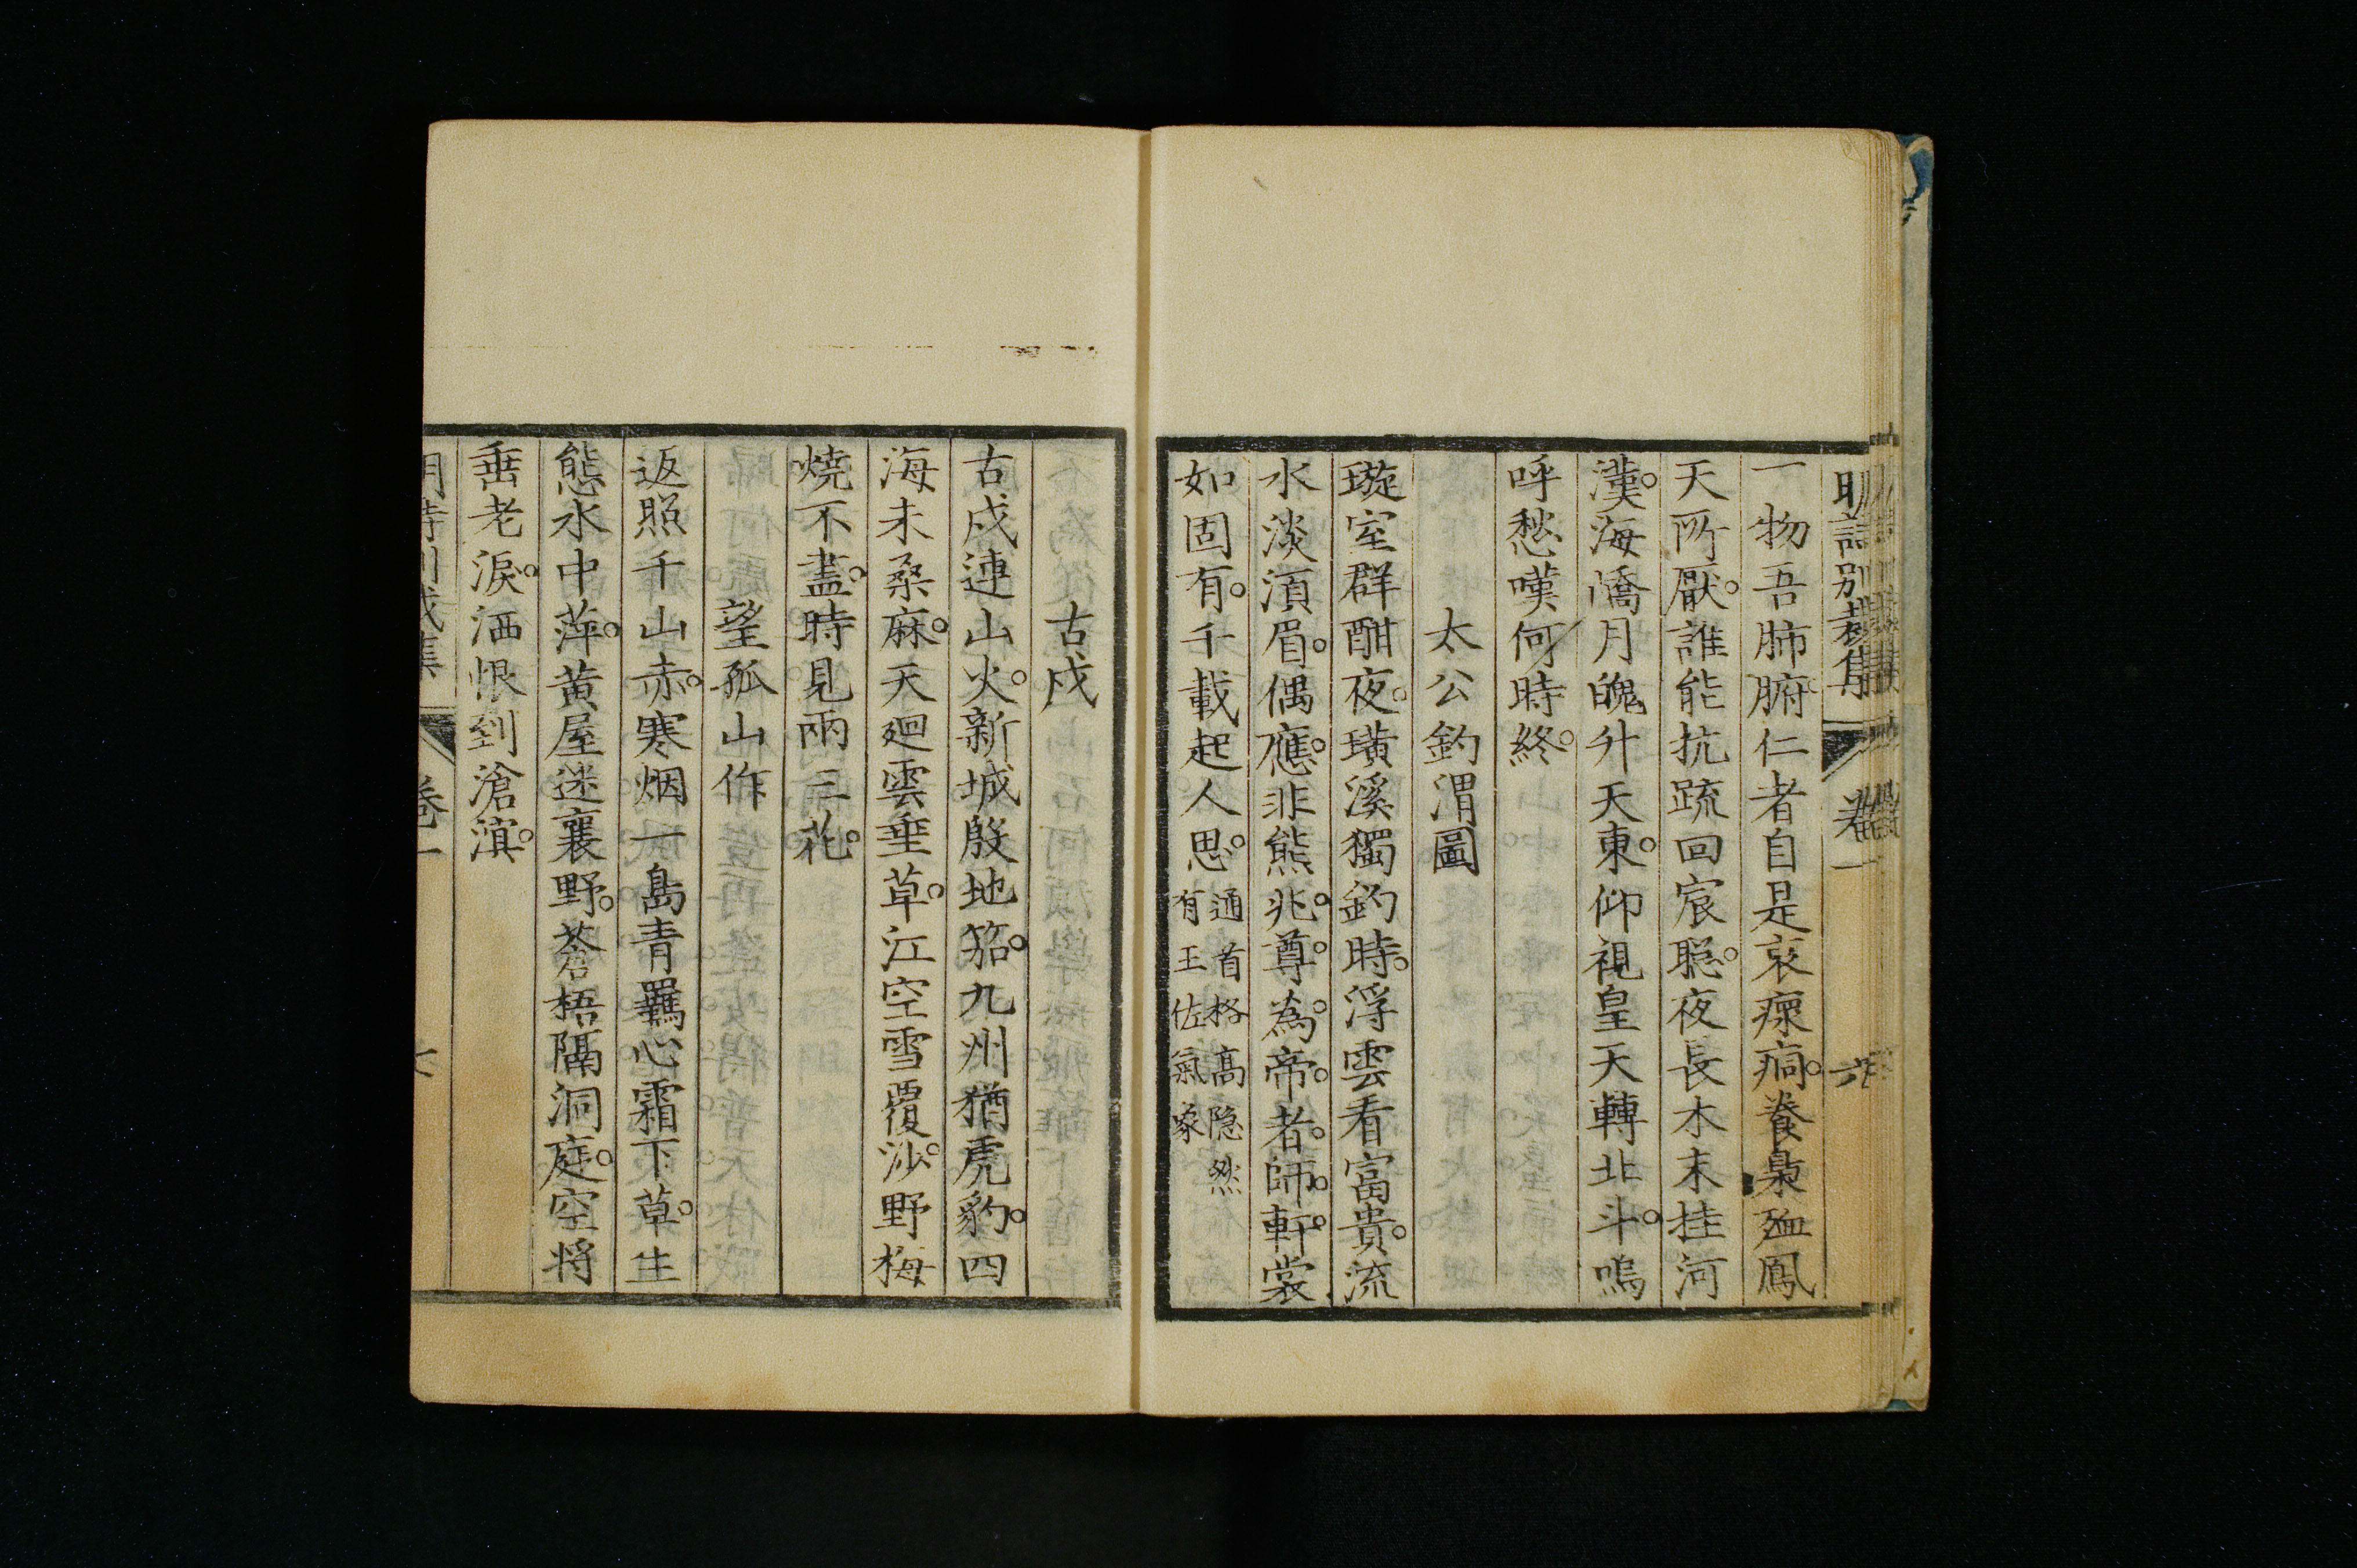 明詩別裁集 卷一 六
一物吾肺腑仁者自是哀瘝痌養梟殈鳳
天所厭誰能抗疏回宸聡夜長木末挂河
漢海嶠月魄升天東仰視皇天轉北斗嗚
呼愁嘆何時終
太公釣渭圖
璇室群酣夜璜溪獨釣時浮雲看富貴流
水淡湏眉偶應非熊兆尊為帝者師軒裳
如固有千載起人思通首格高隐然
有王佐氣象
古戍
古戍連山火新城殷地笳九州猶虎豹四
海未桑麻天迴雲垂草江空雪覆沙野梅
燒不盡時見兩三花
望孤山作
返照千山赤寒烟一島青羈心霜下草生
態水中萍黃屋迷襄野蒼梧隔洞庭空将
垂老淚洒恨到滄溟